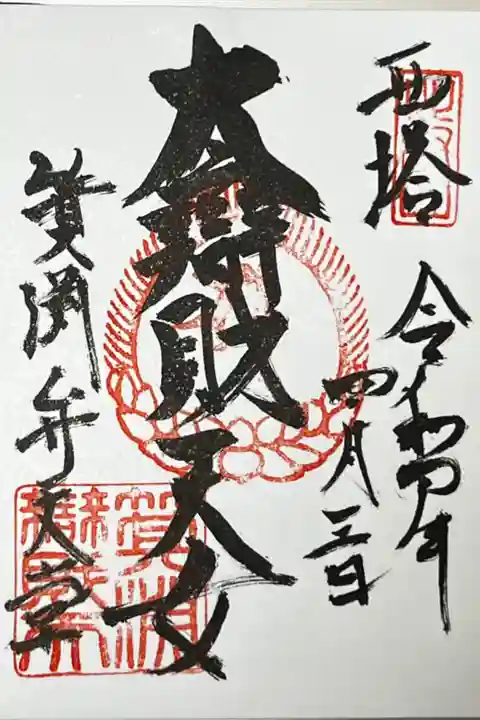 西塔
令和四年
四月三日
大辯財天女
箕渕弁天堂